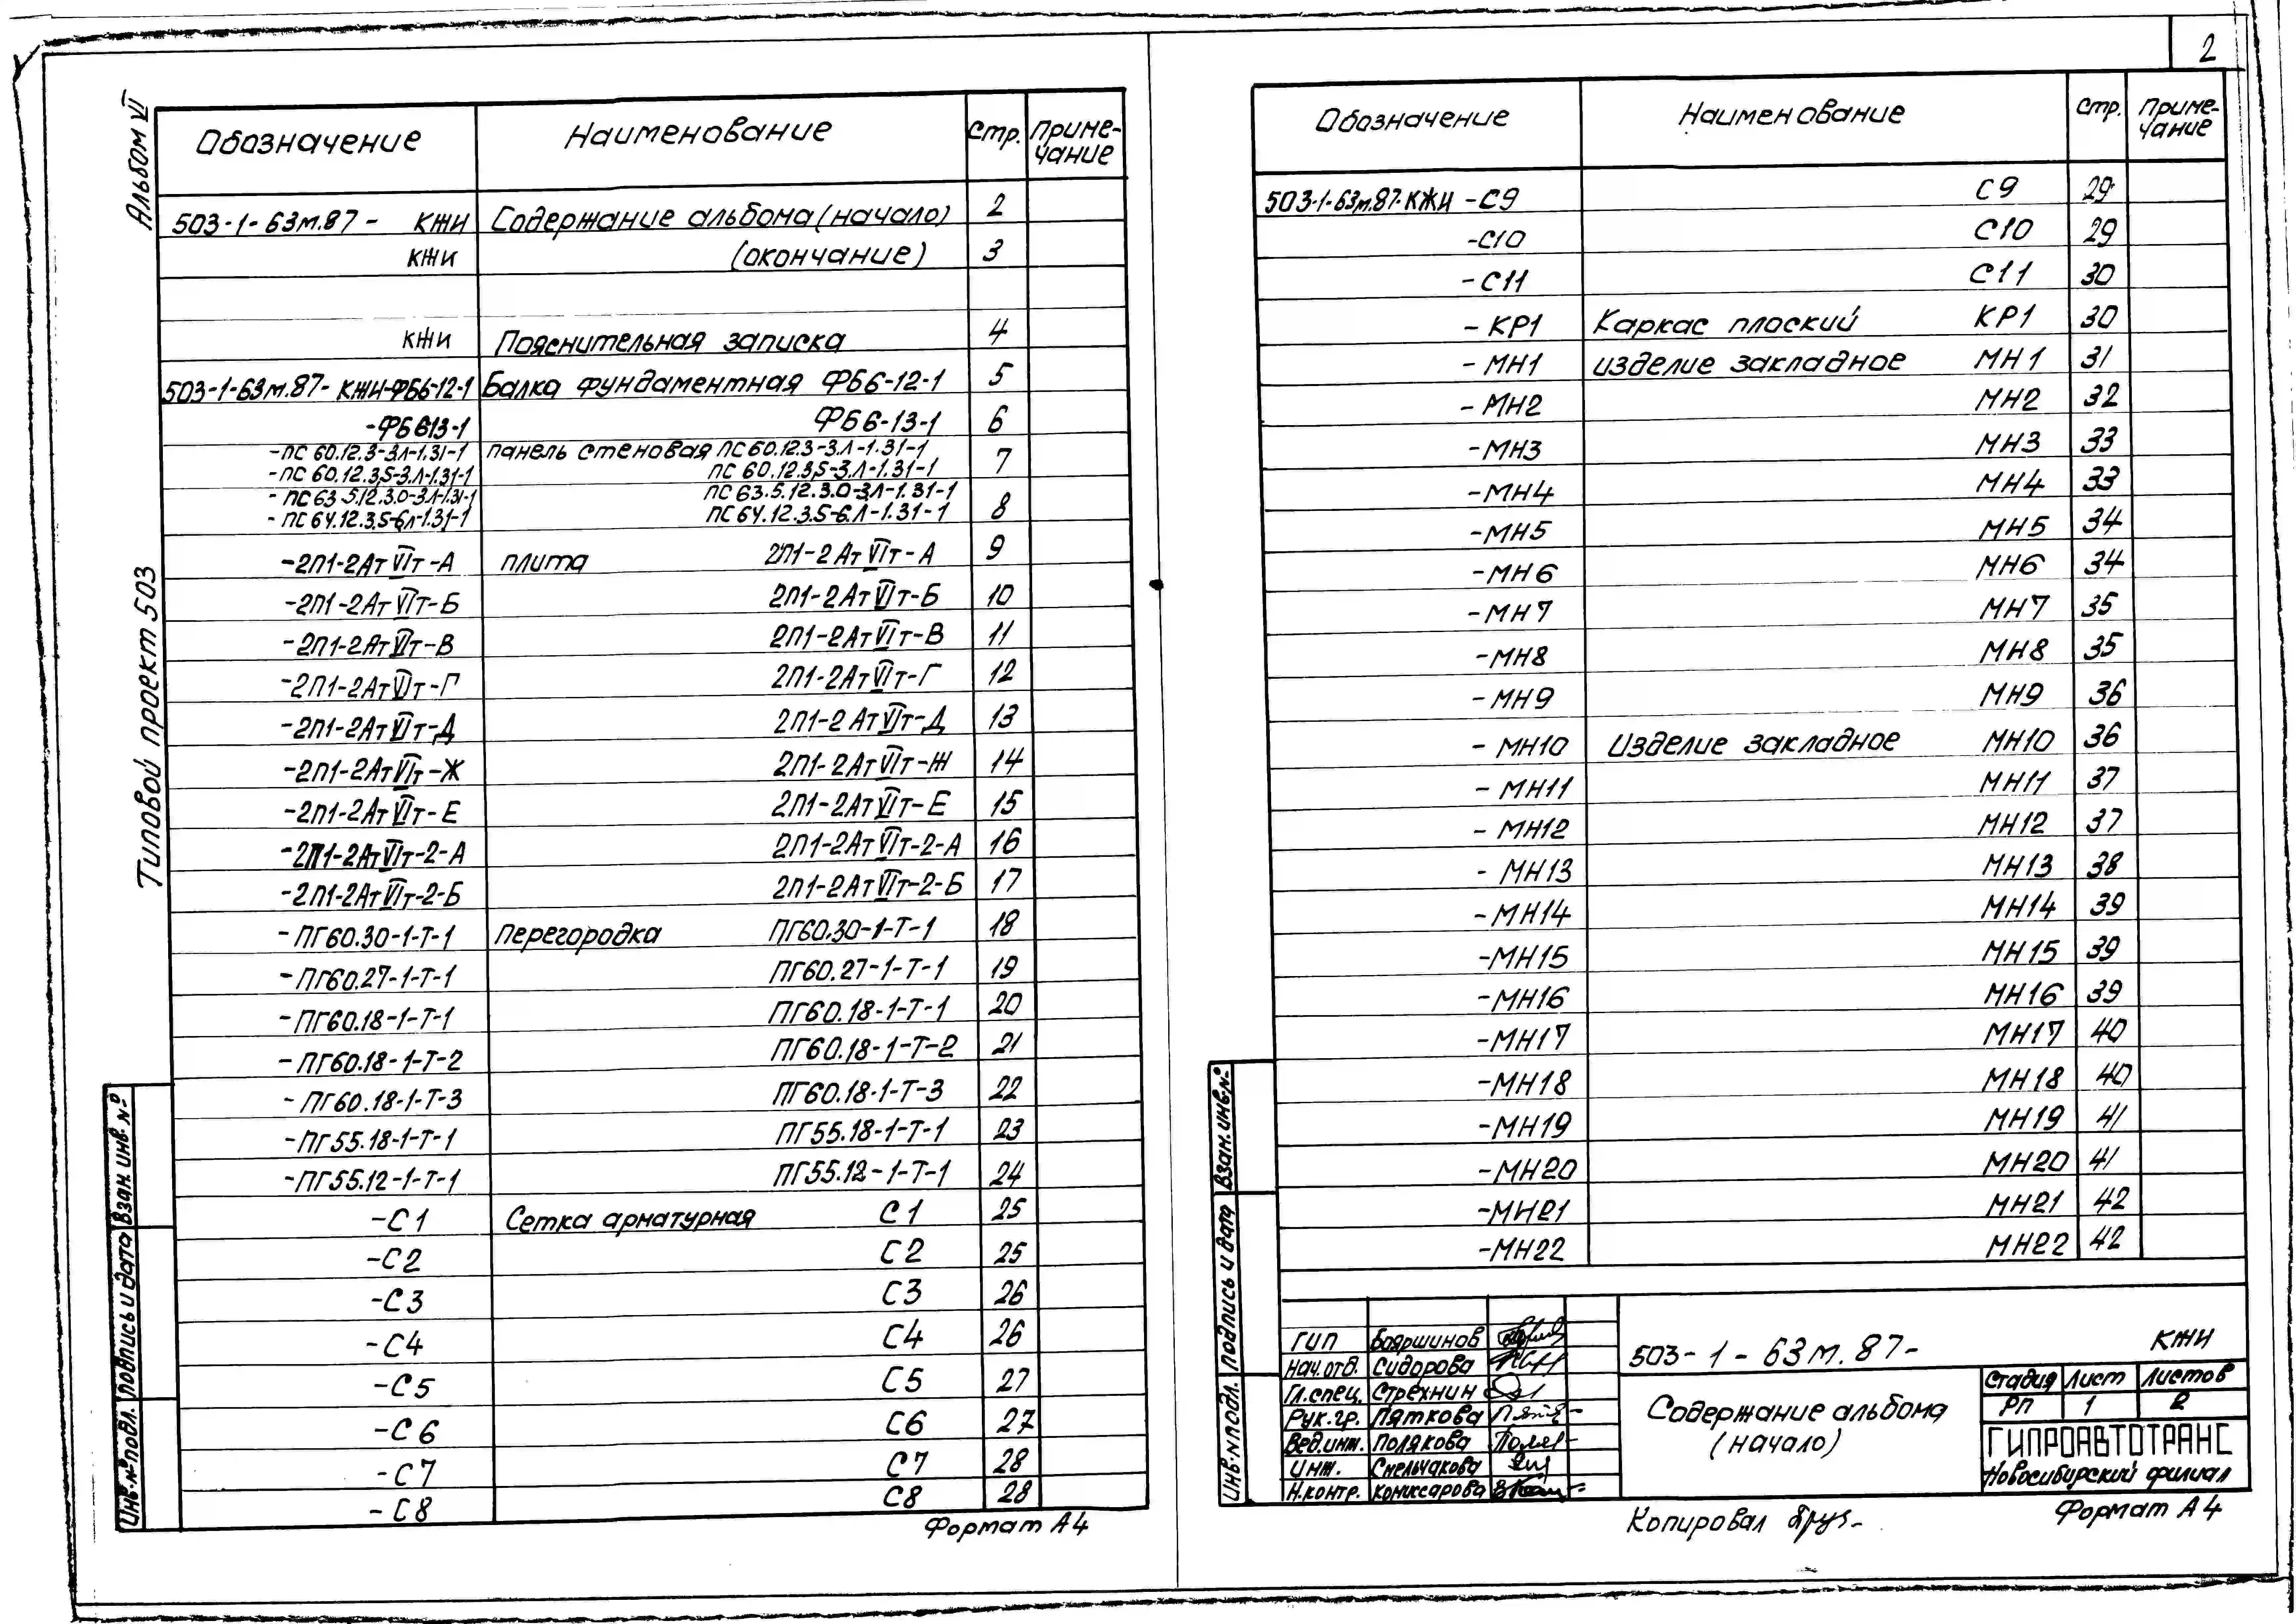 2
Альбом VI
Типовой проект 503
Обозначение Наименование Стр. Приме-
чание
503-1-63м.87- КЖИ Содержание альбома (начало) 2
КЖИ (окончание) 3
КЖИ Пояснительная записка 4
503-1-63м.87- КЖИ-ФБ6-12-1 Балка фундаментная ФБ6-12-1 5
-ФБ613-1 ФБ6-13-1 6
-ПС 60.12.3-3.Л-1.31-1 панель стеновая ПС60.12.3-3.Л-1.31-1
-ПС 60.12.3,5-3.Л-1.31-1 ПС 60.12.3,5-3.Л-1.31-1 7
-ПС63.5.12.3.0-3.Л-1.31-1 ПС63.5.12.3.0-3.Л-1.31-1
-ПС64.12.3.5-6.Л-1.31-1 ПС64.12.3.5-6.Л-1.31-1 8
-2П1-2АтVIт-А плита 2П1-2АтVIт-А 9
-2П1-2АтVIт-Б 2П1-2АтVIт-Б 10
-2П1-2АтVIт-В 2П1-2АтVIт-В 11
-2П1-2АтVIт-Г 2П1-2АтVIт-Г 12
-2П1-2АтVIт-Д 2П1-2АтVIт-Д 13
-2П1-2АтVIт-Ж 2П1-2АтVIт-Ж 14
-2П1-2АтVIт-Е 2П1-2АтVIт-Е 15
-2П1-2АтVIт-2-А 2П1-2АтVIт-2-А 16
-2П1-2АтVIт-2-Б 2П1-2АтVIт-2-Б 17
-ПГ60.30-1-Т-1 перегородка ПГ60.30-1-Т-1 18
-ПГ60.27-1-Т-1 ПГ60.27-1-Т-1 19
-ПГ60.18-1-Т-1 ПГ60.18-1-Т-1 20
-ПГ60.18-1-Т-2 ПГ60.18-1-Т-2 21
-ПГ60.18-1-Т-3 ПГ60.18-1-Т-3 22
-ПГ55.18-1-Т-1 ПГ55.18-1-Т-1 23
-ПГ55.12-1-Т-1 ПГ55.12-1-Т-1 24
-С1 Сетка арматурная С1 25
-С2 С2 25
-С3 С3 26
-С4 С4 26
-С5 С5 27
-С6 С6 27
-С7 С7 28
-С8 С8 28
Взан. инв. №
Подпись и дата
Инв. № подл.
Формат А4
Обозначение Наименование Стр. Приме-
чание
503-1-63м.87-КЖИ -С9 С9 29
-С10 С10 29
-С11 С11 30
-КР1 Каркас плоский КР1 30
-МН1 изделие закладное МН1 31
-МН2 МН2 32
-МН3 МН3 33
-МН4 МН4 33
-МН5 МН5 34
-МН6 МН6 34
-МН7 МН7 35
-МН8 МН8 35
-МН9 МН9 36
-МН10 Изделие закладное МН10 36
-МН11 МН11 37
-МН12 МН12 37
-МН13 МН13 38
-МН14 МН14 39
-МН15 МН15 39
-МН16 МН16 39
-МН17 МН17 40
-МН18 МН18 40
-МН19 МН19 41
-МН20 МН20 41
-МН21 МН21 42
-МН22 МН22 42
Взан. инв. №
Подпись и дата
Инв. № подл.
ГИП Бояршинов
Нач.отд. Сидорова
Гл.спец. Стрехнин
Рук.гр. Пяткова
Вед.инж. Полякова
Инж. Смельчакова
Н.контр. Комиссарова
503-1-63м.87- КЖИ
Содержание альбома
(начало)
Стадия Лист Листов
РП 1 2
ГИПРОАВТОТРАНС
Новосибирский филиал
Копировал
Формат А4